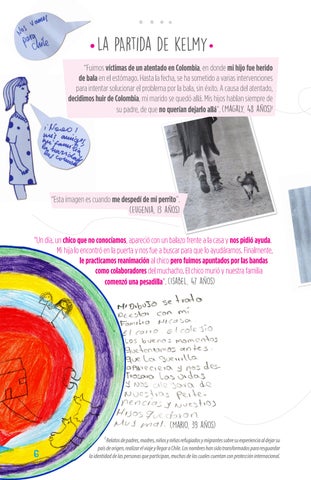 Nos vamos
para
Chile
• LA PARTIDA DE KELMY •
"Fuimos víctimas de un atentado en Colombia, en donde mi hijo fue herido
de bala en el estómago. Hasta la fecha, se ha sometido a varias intervenciones
para intentar solucionar el problema por la bala, sin éxito. A causa del atentado,
decidimos huir de Colombia, mi marido se quedó allá. Mis hijos hablan siempre de
su padre, de que no querían dejarlo allá". (MAGALY, 48 AÑOS)²
¡Nooo!
mis amigos
mi familia
"Esta imagen es cuando me despedí de mi perrito".
(EUGENIA, 13 AÑOS)
"Un día, un chico que no conocíamos, apareció con un balazo frente a la casa y nos pidió ayuda.
Mi hija lo encontró en la puerta y nos fue a buscar para que lo ayudáramos. Finalmente,
le practicamos reanimación al chico pero fuimos apuntados por las bandas
como colaboradores del muchacho. El chico murió y nuestra familia
comenzó una pesadilla". (ISABEL, 47 AÑOS)
Mi Dibujo se trata
De estar con mi
Familia Mi casa
El carro el colegio
Los buenos momentos
que teniamos antes.
que la guerrilla
apareciera y nos des-
trozara las vidas
y nos alejara de
Nuestras Perte-
nencias y Nuestros
Hijos quedaron
Muy mal. (MARIO, 39 AÑOS)
² Relatos de padres, madres, niños y niñas refugiados y migrantes sobre su experiencia al dejar su
país de origen, realizar el viaje y llegar a Chile. Los nombres han sido transformados para resguardar
la identidad de las personas que participan, muchas de las cuales cuentan con protección internacional.
6